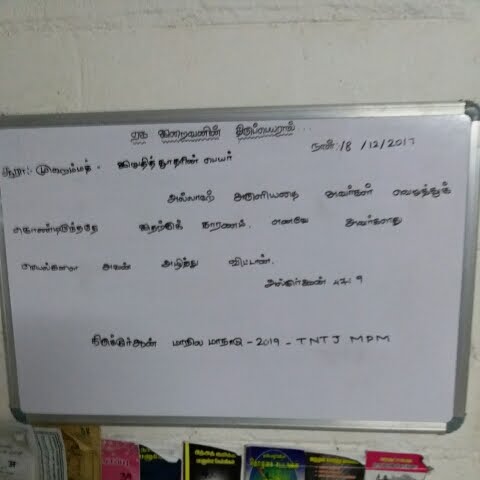 ஏக இறைவனின் திருப்பெயரால்...
நாள்:18/12/2017
சூரா:- முஹம்மத் - இறுதித்தூதரின் பெயர்
அல்லாஹ் அருளியதை அவர்கள் வெறுத்துக்
கொண்டிருந்ததே இதற்குக் காரணம். எனவே அவர்களது
செயல்களை அவன் அழித்து விட்டான்.
அல்குர்ஆன் 47:9
திருக்குர்ஆன் மாநில மாநாடு - 2019 - TNTJ MDM